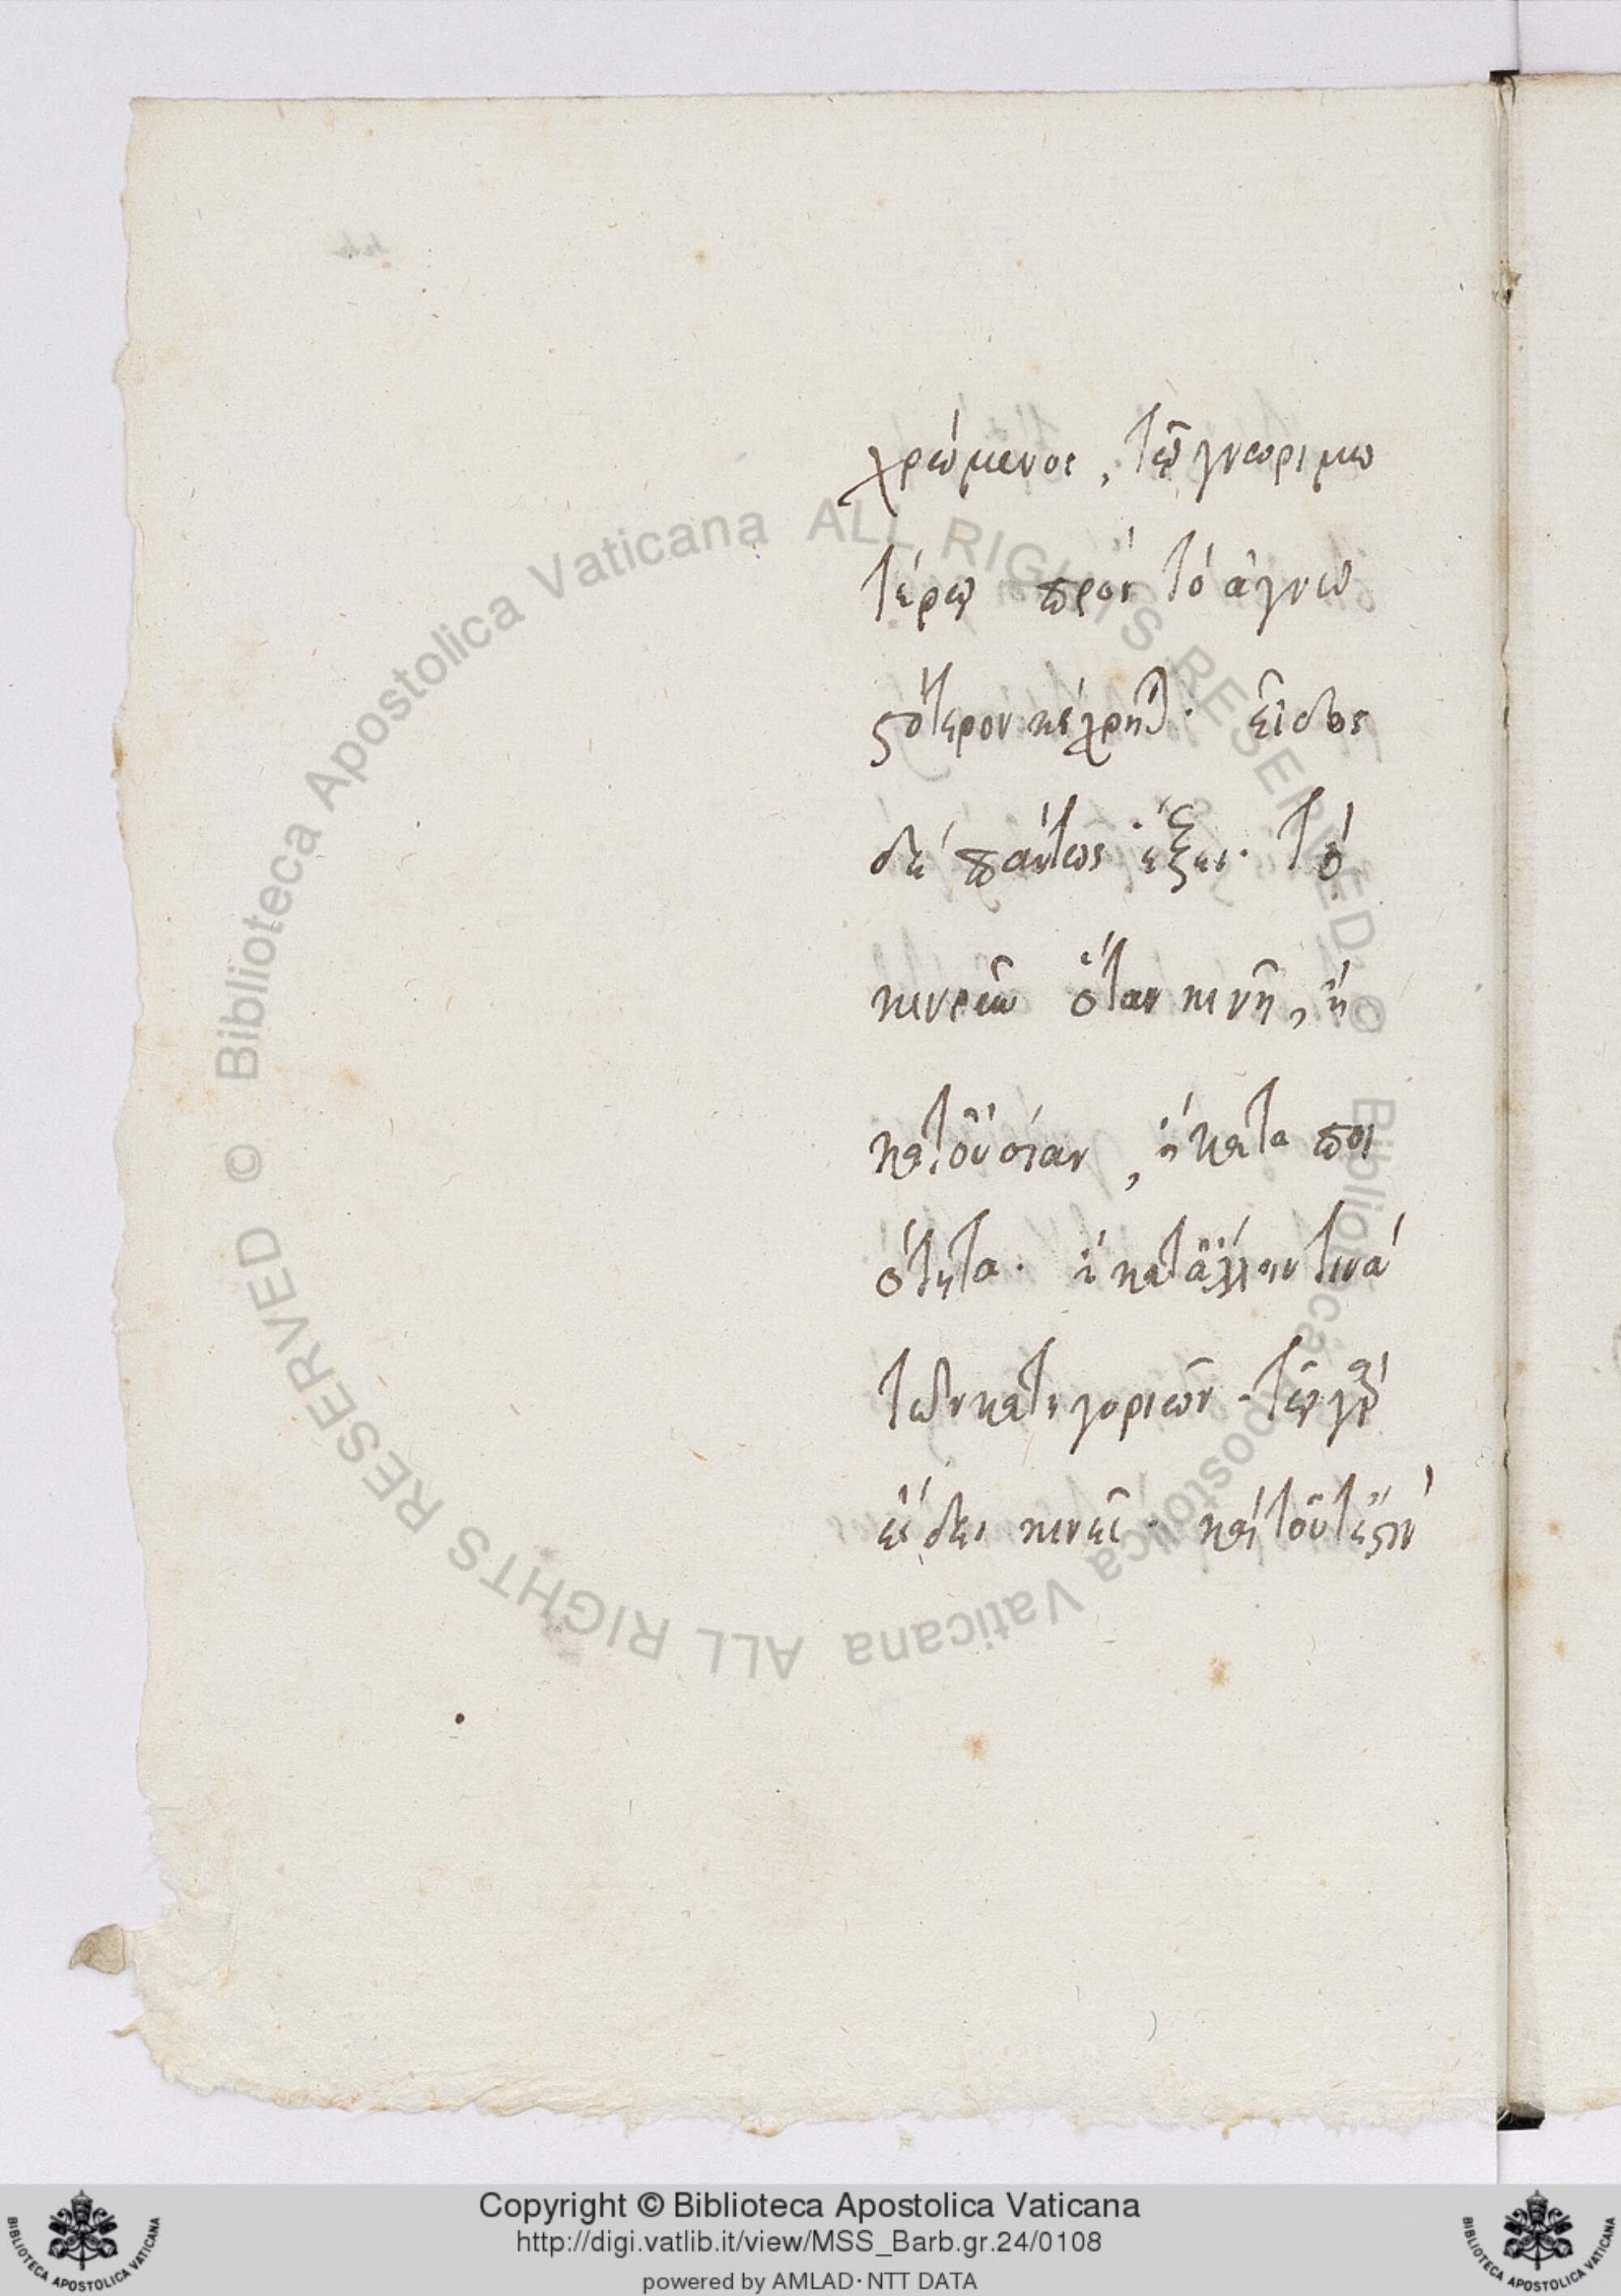 χρώμενος, τῶ γνωριμω
τέρω πρὸς τὸ ἀγνω
στότερον κέχρηται· εἶδος
δὲ πάντως ἕξει· τὸ
κινοῦν ὅταν κινῆ, ἢ
κατ' οὐσίαν, ἢ κατα ποι
ότητα· ἢ κατ' ἄλλην τινὰ
τῶν κατηγοριῶν· τῶ γὰρ
εἴδει κινεῖ· καὶ τοῦτ' ἔστιν
© Biblioteca Apostolica Vaticana ALL RIGHTS RESERVED © Biblioteca Apostolica Vaticana ALL RIGHTS RESERVED
Copyright © Biblioteca Apostolica Vaticana
http://digi.vatlib.it/view/MSS_Barb.gr.24/0108
powered by AMLAD·NTT DATA
BIBLIOTECA APOSTOLICA VATICANA
BIBLIOTECA APOSTOLICA VATICANA